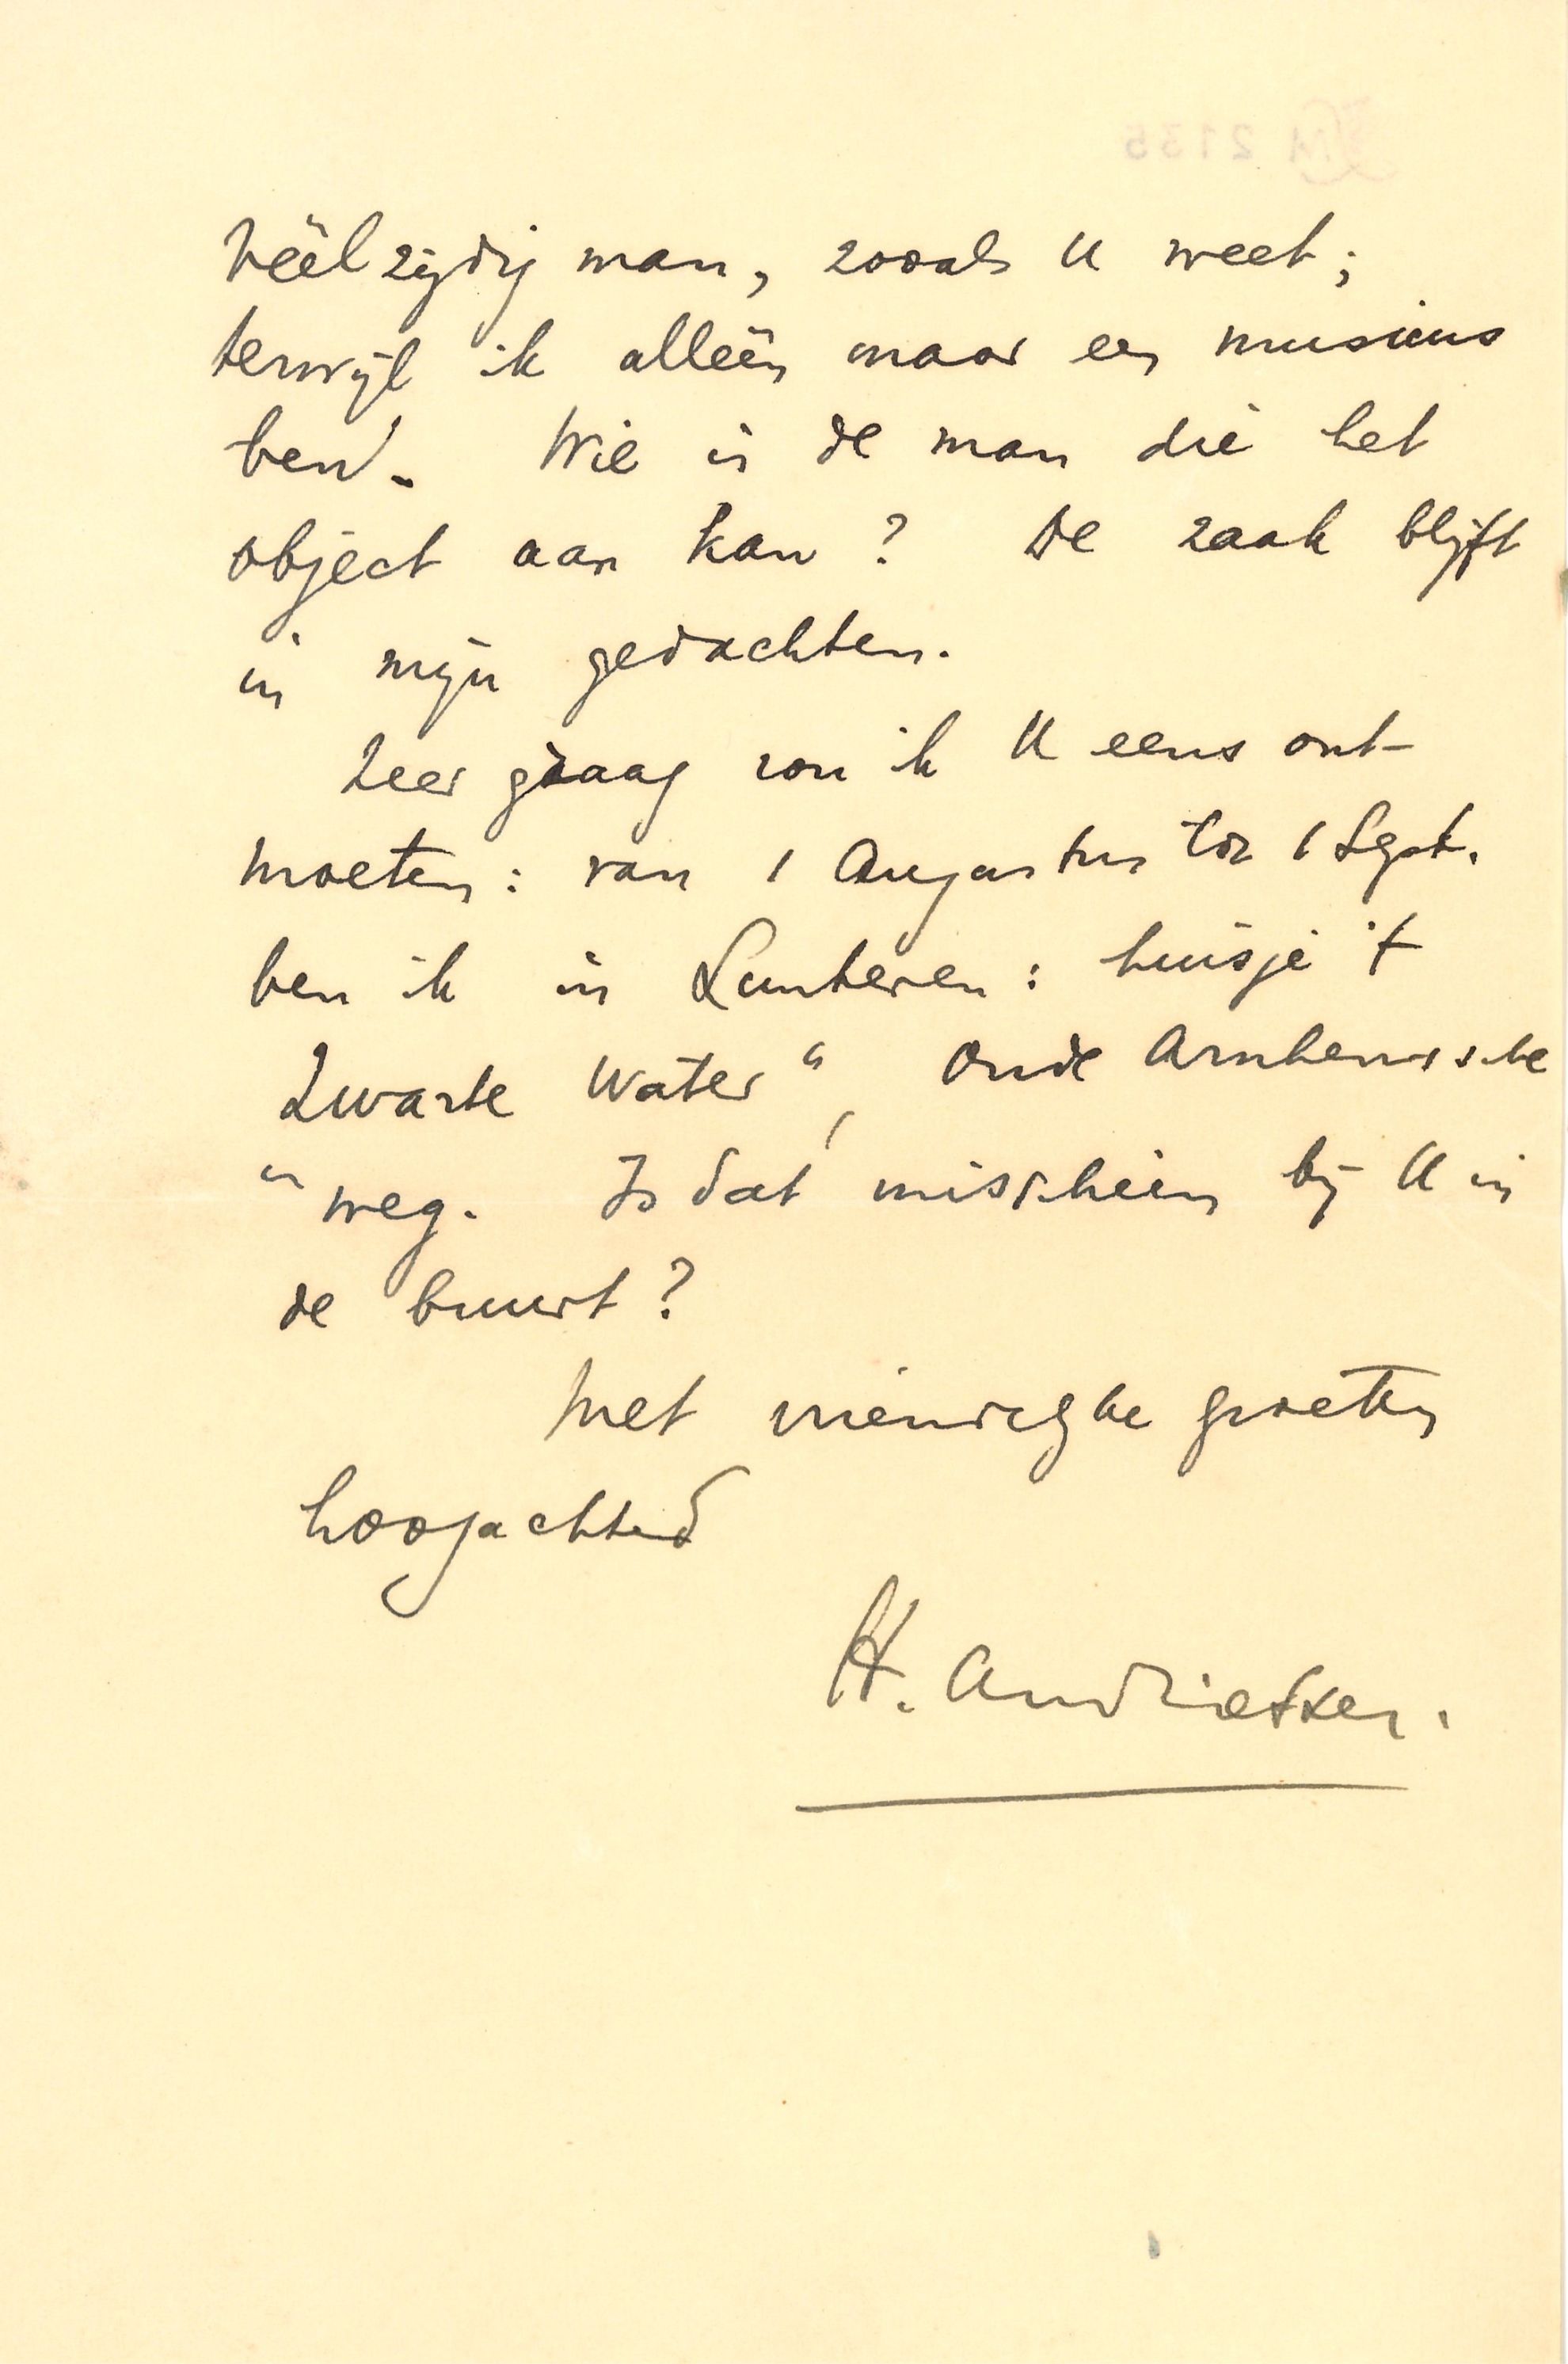 véélzijdig man, zooals U weet;
terwijl ik alleen maar een musicus
ben. Wie is de man die het
object aan kan? De zaak blijft
in mijn gedachten.
Zeer graag zou ik U eens ont-
moeten: van 1 Augustus tot 1 Sept.
ben ik in Lunteren: huisje 't
Zwarte Water", Oude Arnhemsche
"weg. Is dat misschien bij U in
de buurt?
Met vriendelijke groeten
hoogachtend
H. Andriessen.